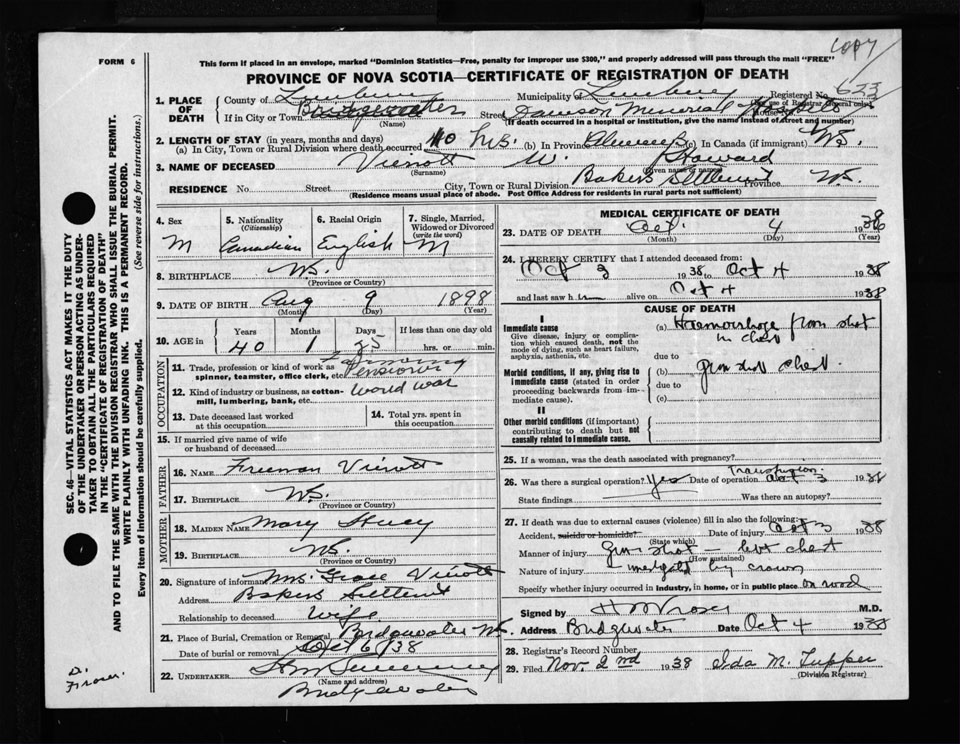 COPY
FORM 6
This form if placed in an envelope, marked "Dominion Statistics—Free, penalty for improper use $300," and properly addressed will pass through the mail "FREE"
PROVINCE OF NOVA SCOTIA—CERTIFICATE OF REGISTRATION OF DEATH
623
1. PLACE OF DEATH
County of Lunenburg Municipality of Lunenburg Registered No.
(For use of Registrar General only)
If in City or Town Bridgewater Street Dawson Memorial Hospital House No.
(Name) (If death occurred in a hospital or institution, give the name instead of street and number)
2. LENGTH OF STAY (in years, months and days)
(a) In City, Town or Rural Division where death occurred 40 hrs. (b) In Province Always (c) In Canada (if immigrant) N.S.
3. NAME OF DECEASED Vienott W. Howard
(Surname) (Given name or names)
RESIDENCE No. Street City, Town or Rural Division Bakers Settlement Province N.S.
(Residence means usual place of abode. Post Office Address for residents in rural parts not sufficient)
4. Sex M
5. Nationality (Citizenship) Canadian
6. Racial Origin English
7. Single, Married, Widowed or Divorced (write the word) M
8. BIRTHPLACE N.S.
(Province or Country)
9. DATE OF BIRTH Aug 9 1898
(Month) (Day) (Year)
10. AGE in
Years Months Days If less than one day old
40 1 25 hrs. or min.
OCCUPATION
11. Trade, profession or kind of work as spinner, teamster, office clerk, etc. Farming Pensioner
12. Kind of industry or business, as cotton-mill, lumbering, bank, etc. World War
13. Date deceased last worked at this occupation
14. Total yrs. spent in this occupation
15. If married give name of wife or husband of deceased
FATHER
16. NAME Freeman Vienott
17. BIRTHPLACE N.S.
(Province or Country)
MOTHER
18. MAIDEN NAME Mary
19. BIRTHPLACE N.S.
(Province or Country)
20. Signature of informant Mrs. Grace Vienott
Address Bakers Settlement
Relationship to deceased Wife
21. Place of Burial, Cremation or Removal Bridgewater N.S.
Date of burial or removal Oct 6/38
22. UNDERTAKER
(Name and address)
Bridgewater
MEDICAL CERTIFICATE OF DEATH
23. DATE OF DEATH Oct. 4 1938
(Month) (Day) (Year)
24. I HEREBY CERTIFY that I attended deceased from:
Oct 3 1938 to Oct 4 1938
and last saw him alive on Oct 4 1938
CAUSE OF DEATH
I
Immediate cause
Give disease, injury or complication which caused death, not the mode of dying, such as heart failure, asphyxia, asthenia, etc.
(a) Haemorrhage from shot in chest
due to
Morbid conditions, if any, giving rise to immediate cause (stated in order proceeding backwards from immediate cause).
(b) gun shot chest.
due to
(c)
II
Other morbid conditions (if important) contributing to death but not causally related to immediate cause.
25. If a woman, was the death associated with pregnancy?
26. Was there a surgical operation? Yes Transfusion. Date of operation Oct 3 1938
State findings Was there an autopsy?
27. If death was due to external causes (violence) fill in also the following:
Accident, suicide or homicide? Date of injury Oct 3 1938
(State which)
Manner of injury Gun shot — left chest
(How sustained)
Nature of injury
Specify whether injury occurred in industry, in home, or in public place
Signed by M.D.
Address Bridgewater Date Oct 4 1938
28. Registrar's Record Number
29. Filed Nov 2nd 1938 Ida M. Tupper
(Division Registrar)
SEC. 46—VITAL STATISTICS ACT MAKES IT THE DUTY
OF THE UNDERTAKER OR PERSON ACTING AS UNDER-
TAKER TO OBTAIN ALL THE PARTICULARS REQUIRED
IN THE "CERTIFICATE OF REGISTRATION OF DEATH"
AND TO FILE THE SAME WITH THE DIVISION REGISTRAR WHO SHALL ISSUE THE BURIAL PERMIT.
WRITE PLAINLY WITH UNFADING INK. THIS IS A PERMANENT RECORD.
Every item of information should be carefully supplied. (See reverse side for instructions.)